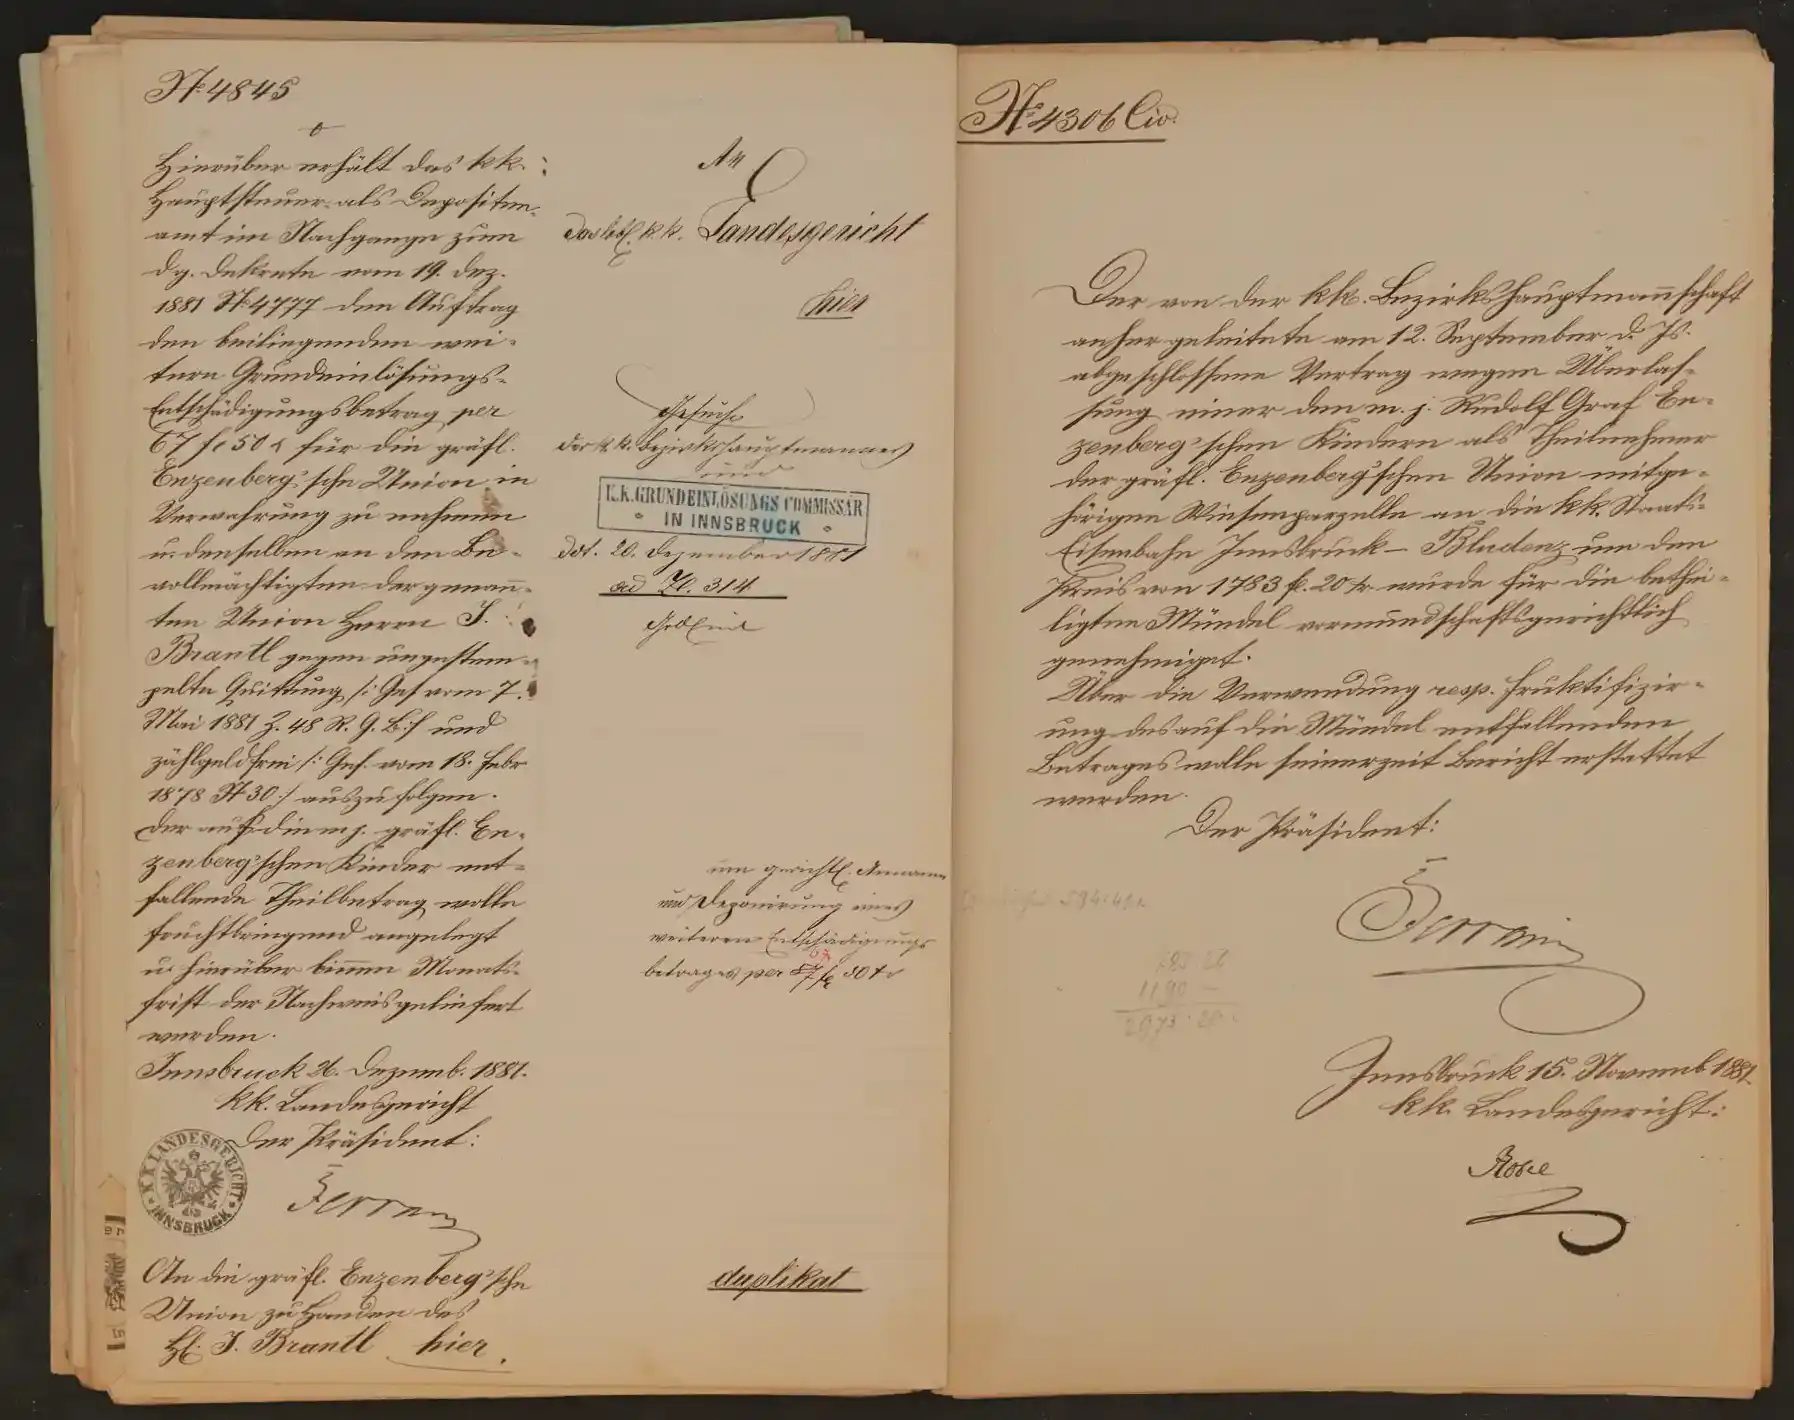 № 4845
Hierüber erhält das kk.
Hauptsteuer- als Depositen-
amt im Nachgange zum
dg. Dekrete vom 19. Dez.
1881 № 4777 den Auftrag
den beiliegenden wei-
tern Grundeinlösungs-
Entschädigungsbetrag per
67 fl 50 x für die gräfl.
Enzenberg'sche Union in
Verwahrung zu nehmen
u. denselben an den Be-
vollmächtigten der genann-
ten Union Herrn J.
Brantl gegen ungestem-
pelte Quittung /: Ges vom 7.
Mai 1881 Z. 48 R. G. B :/ und
zählgeldfrei /: Ges. vom 18. Febr
1878 № 30 :/ auszufolgen.
Der auf die mj. gräfl. En-
zenberg'schen Kinder ent-
fallende Theilbetrag wolle
fruchtbringend angelegt
u. hierüber binnen Monats-
frist der Nachweis geliefert
werden.
Innsbruck 26. Dezemb. 1881.
kk. Landesgericht
Der Präsident:
Ferrari
K K LANDESGERICHT
INNSBRUCK
An die gräfl. Enzenberg'sche
Union zu Handen des
H. J. Brantl hier.
An
das löbl. k. k. Landesgericht
hier
Gesuch
des k. k. Bezirkshauptmannes
und
K.K. GRUNDEINLÖSUNGS COMMISSÄR
IN INNSBRUCK
ddt. 20. Dezember 1881
ad Zl. 314
um gerichtl. Annahme
und Deponirung eines
weiteren Entschädigungs
betrages per 67 fl 50 kr
duplikat
№ 4306 Civ.
Der von der kk. Bezirkshauptmannschaft
anher geleitete am 12. September d. Js.
abgeschlossene Vertrag wegen Überlas-
sung einer den m. j. Rudolf Graf En-
zenberg'schen Kindern als Theilnehmer
der gräfl. Enzenberg'schen Union mitge-
hörigen Wiesenparzelle an die kk. Staats-
Eisenbahn Innsbruck – Bludenz um den
Preis von 1783 fl. 20 kr wurde für die bethei-
ligten Mündel vormundschaftsgerichtlich
genehmiget.
Über die Verwendung resp. Fruktifizir-
ung des auf die Mündel entfallenden
Betrages wolle seinerzeit Bericht erstattet
werden.
Der Präsident:
Ferrari
1190 –
2973.20
Innsbruck 15. Novemb 1881.
kk. Landesgericht: